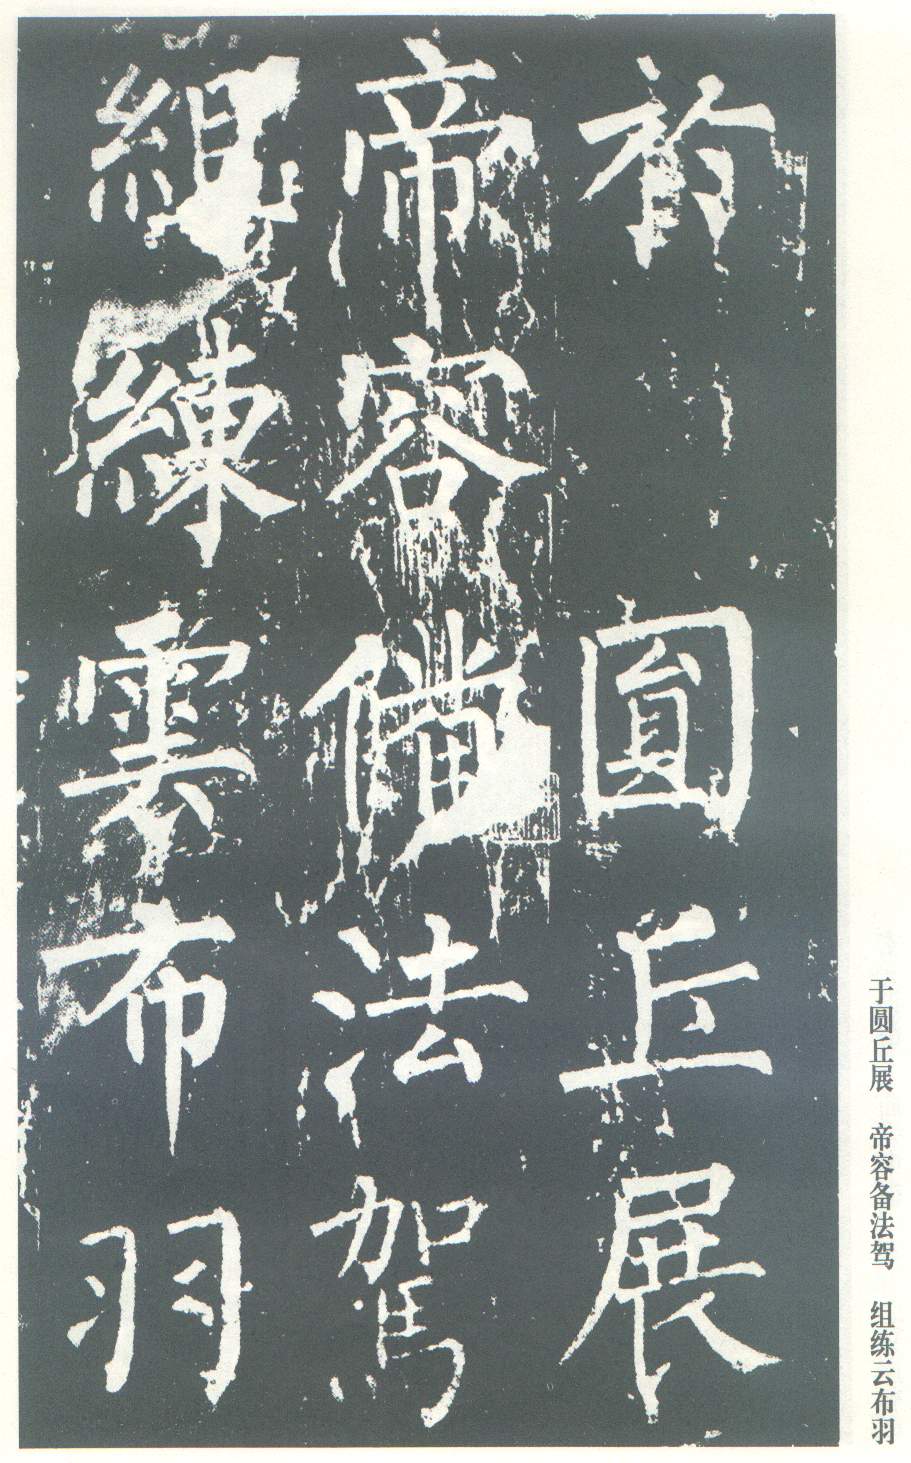 於 圓丘展
帝容備法駕
組練雲布羽
于圆丘展 帝容备法驾 组练云布羽